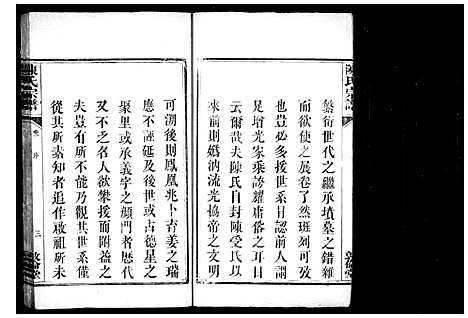 陳氏宗譜
繁衍世代之繼承墳墓之錯雜
而欲使之展卷了然班列可攷
也豈必多援世系日認前人謂
足增光家乘誇耀庸俗之耳目
云爾哉夫陳氏自封陳受氏以
來前則媯汭流光協帝之文明
可溯後則鳳凰兆卜吉姜之瑞
應不誣延及後世或占德星之
聚里或承義字之顔門者歴代
又不乏名人欲攀援而附會之
夫豈有所不能乃觀其世系僅
從其所素知者追作啟祖所未
陳氏宗譜
卷 序
三
敦倫堂